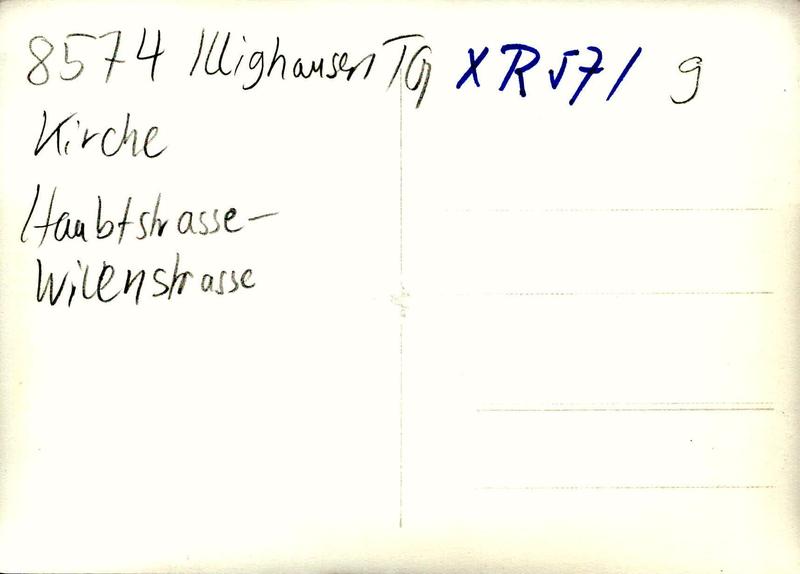 8574 Illighausen TG XR571 g
Kirche
Haubtstrasse-
Wilenstrasse